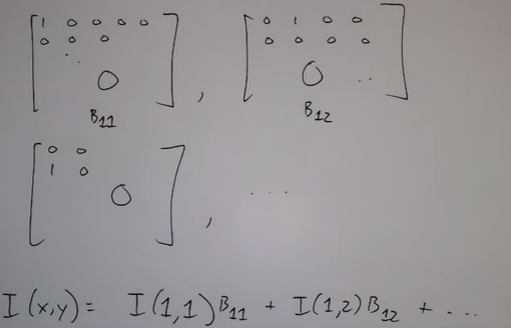 [1 0 0 0 0 [0 1 0 0
0 0 0 0 0 0 0
. . 0 ] , 0 . . ]
B11 B12
[0 0
1 0
0 ] , . . .
I(x,y) = I(1,1)B11 + I(1,2)B12 + ...